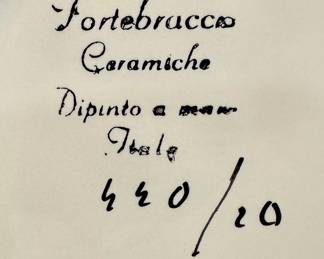 Fortebracco
Ceramiche
Dipinto a mano
Italy
440/20